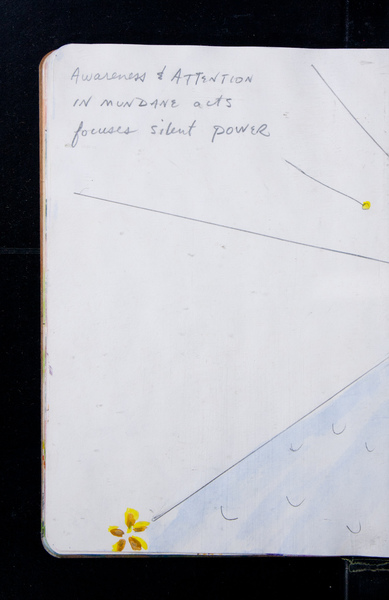 Awareness & ATTENTION
IN MUNDANE acts
focuses silent POWER